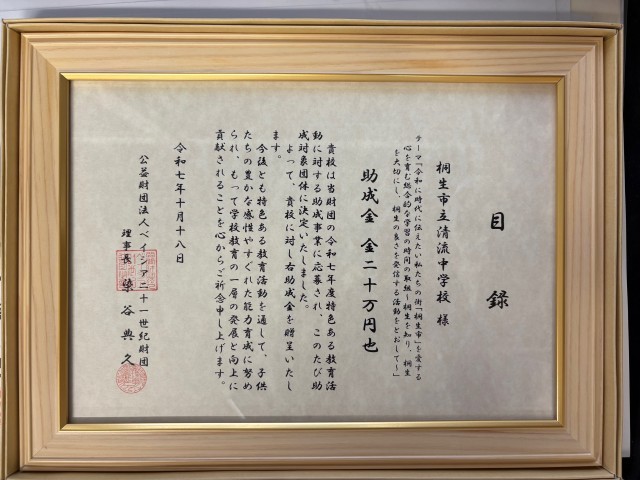 目録
桐生市立清流中学校 様
テーマ「令和に時代に伝えたい私たちの街「桐生市」を愛する
心を育む総合的な学習の時間の取組～桐生を知り、桐生
を大切にし、桐生の良さを発信する活動をとおして～」
助成金 金二十万円也
貴校は当財団の令和七年度特色ある教育活
動に対する助成事業に応募され、このたび助
成対象団体に決定いたしました。
よって、貴校に対し右助成金を贈呈いたし
ます。
今後とも特色ある教育活動を通して、子供
たちの豊かな感性やすぐれた能力育成に努め
られ、もって学校教育の一層の発展と向上に
貢献されることを心からご祈念申し上げます。
令和七年十月十八日
公益財団法人ベイシア二十一世紀財団
理事長 谷典久